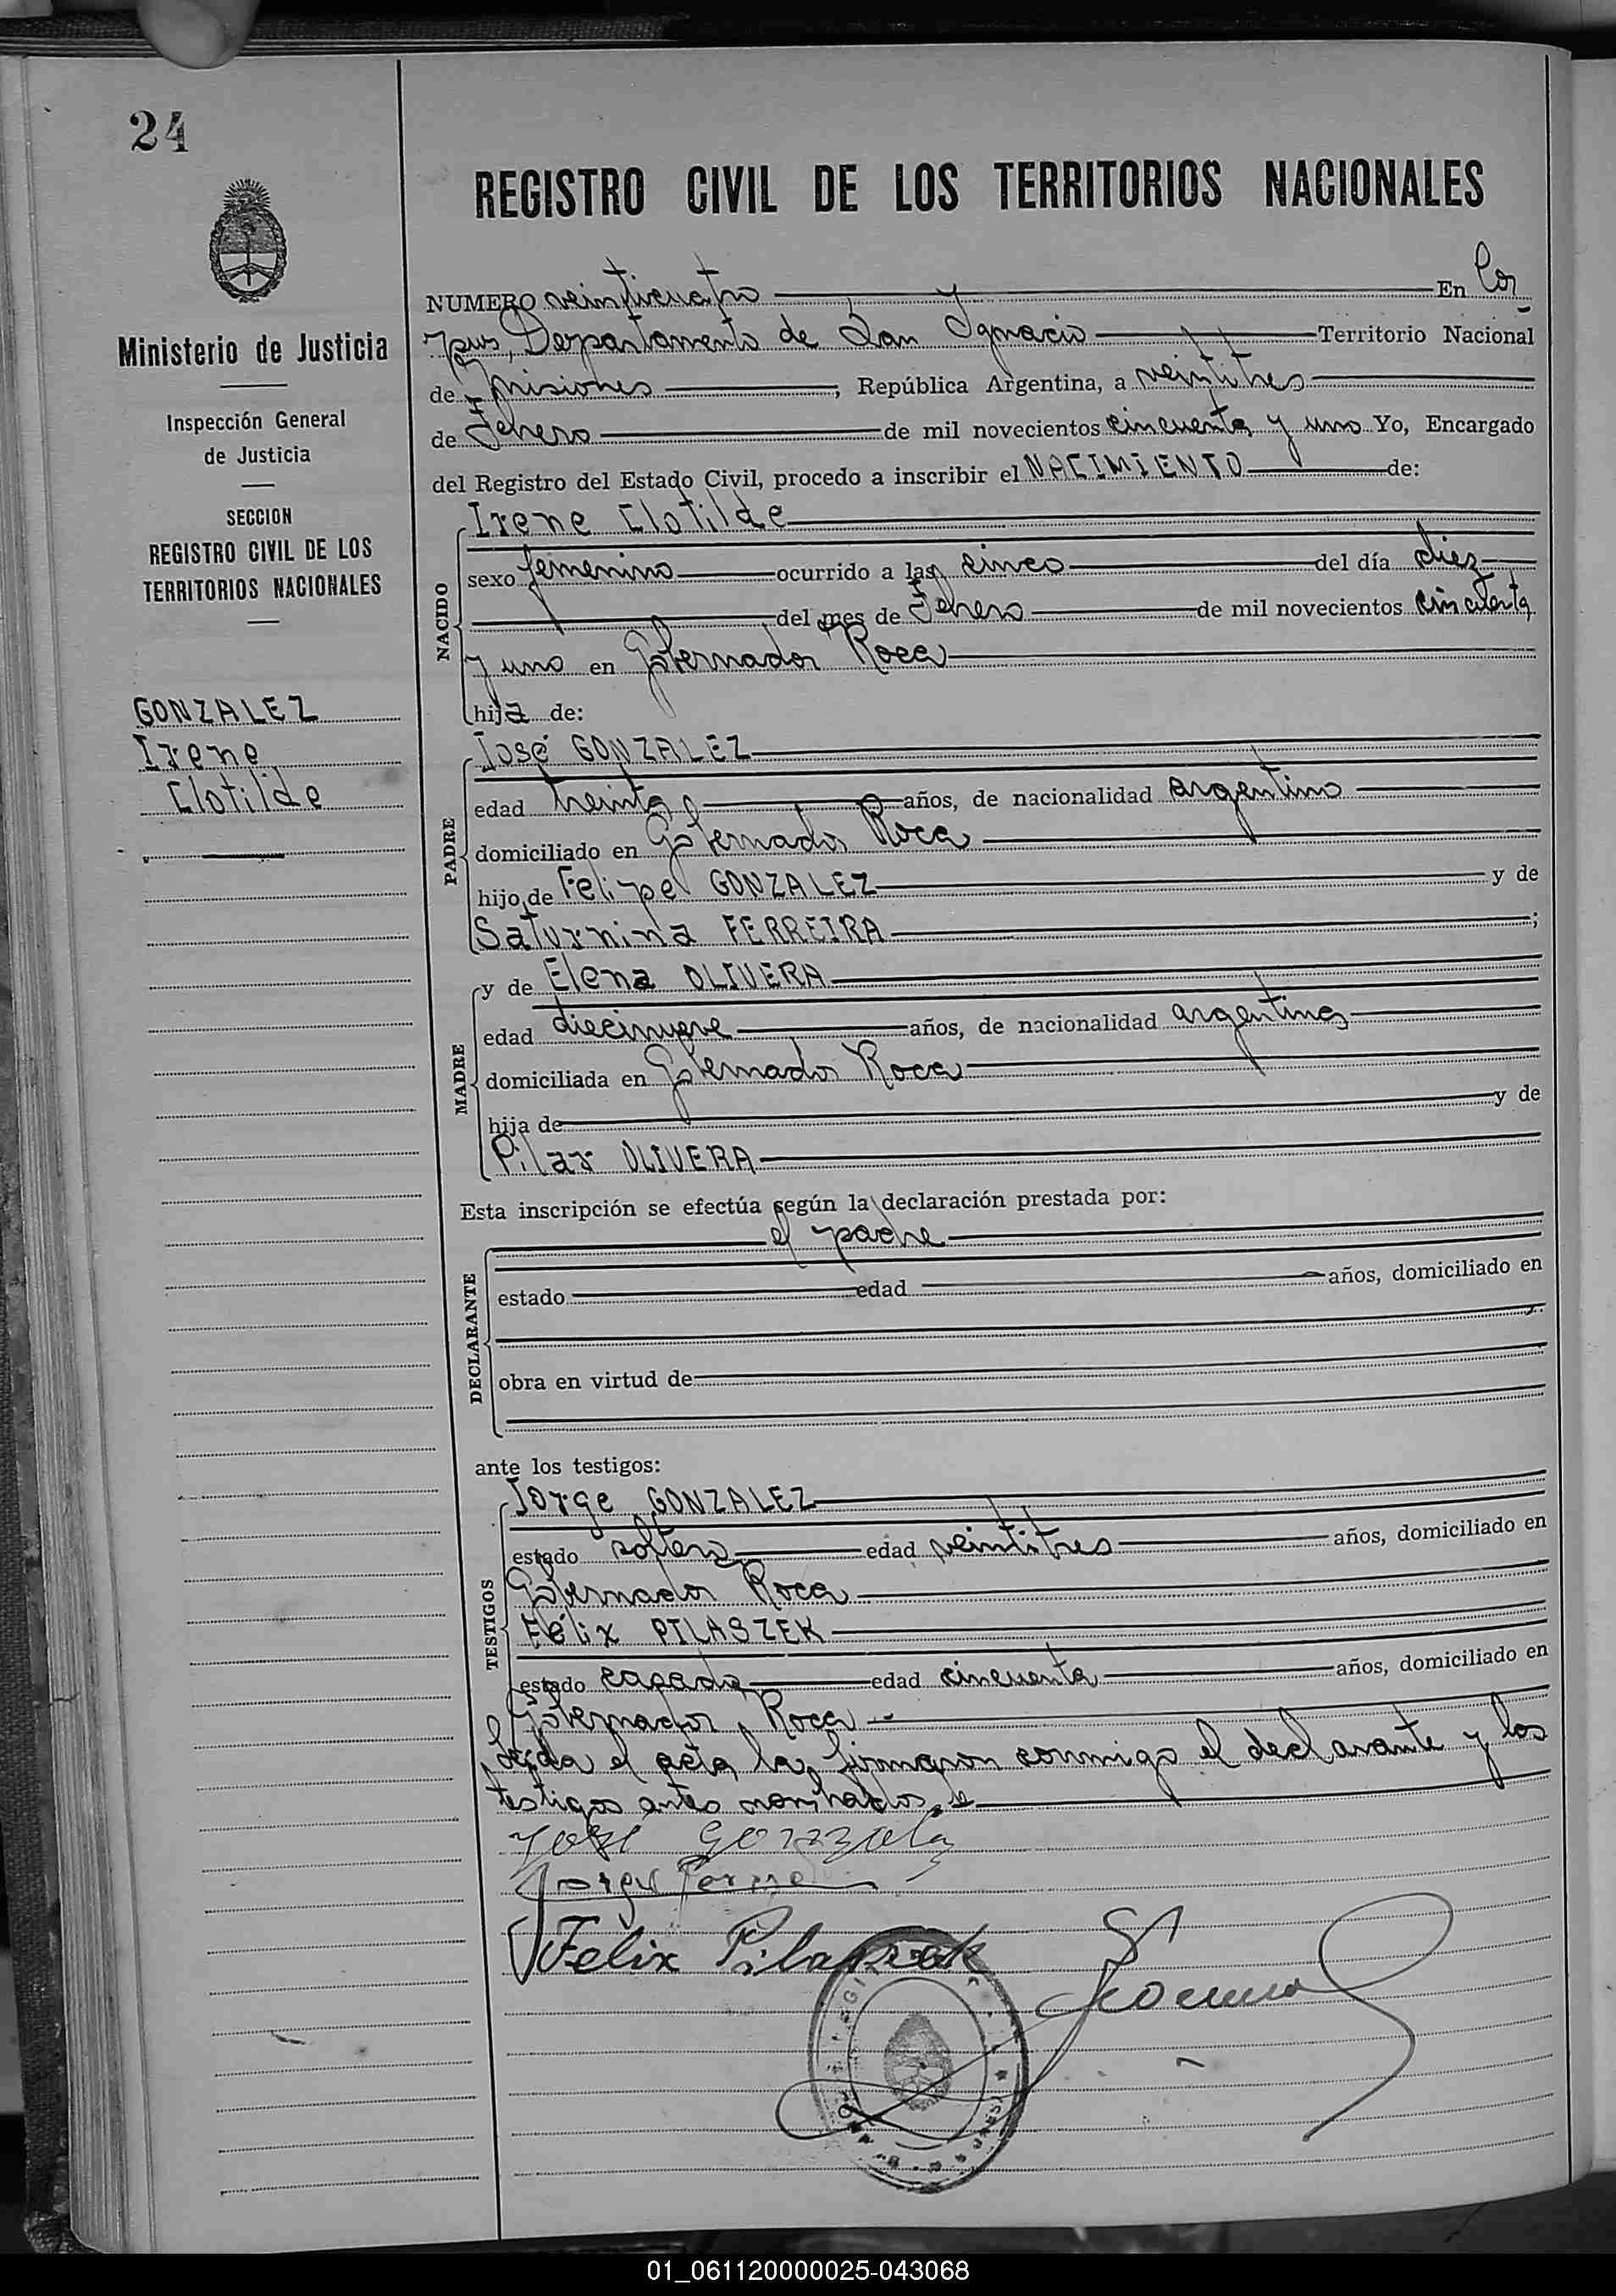 24
REGISTRO CIVIL DE LOS TERRITORIOS NACIONALES
Ministerio de Justicia
Inspección General
de Justicia
SECCION
REGISTRO CIVIL DE LOS
TERRITORIOS NACIONALES
GONZALEZ
Irene
Clotilde
NUMERO veinticuatro En Cor
pus, Departamento de San Ignacio Territorio Nacional
de Misiones, República Argentina, a veintitres
de Febrero de mil novecientos cincuenta y uno Yo, Encargado
del Registro del Estado Civil, procedo a inscribir el NACIMIENTO de:
NACIDO
Irene Clotilde
sexo femenino ocurrido a las cinco del día diez
del mes de Febrero de mil novecientos cincuenta
y uno en Gobernador Roca
hija de:
PADRE
José GONZALEZ
edad treinta años, de nacionalidad argentino
domiciliado en Gobernador Roca
hijo de Felipe GONZALEZ y de
Saturnina FERREIRA;
MADRE
y de Elena OLIVERA
edad diecinueve años, de nacionalidad argentina
domiciliada en Gobernador Roca
hija de y de
Pilar OLIVERA
Esta inscripción se efectúa según la declaración prestada por:
DECLARANTE
el padre
estado edad años, domiciliado en
obra en virtud de
ante los testigos:
TESTIGOS
Jorge GONZALEZ
estado soltero edad veintitres años, domiciliado en
Gobernador Roca
Félix PILASZEK
estado casado edad cincuenta años, domiciliado en
Gobernador Roca
Leída el acta, la firmaron conmigo el declarante y los
testigos antes nombrados
Jose Gonzalez
Jorge
Felix Pilaszek
01_061120000025-043068